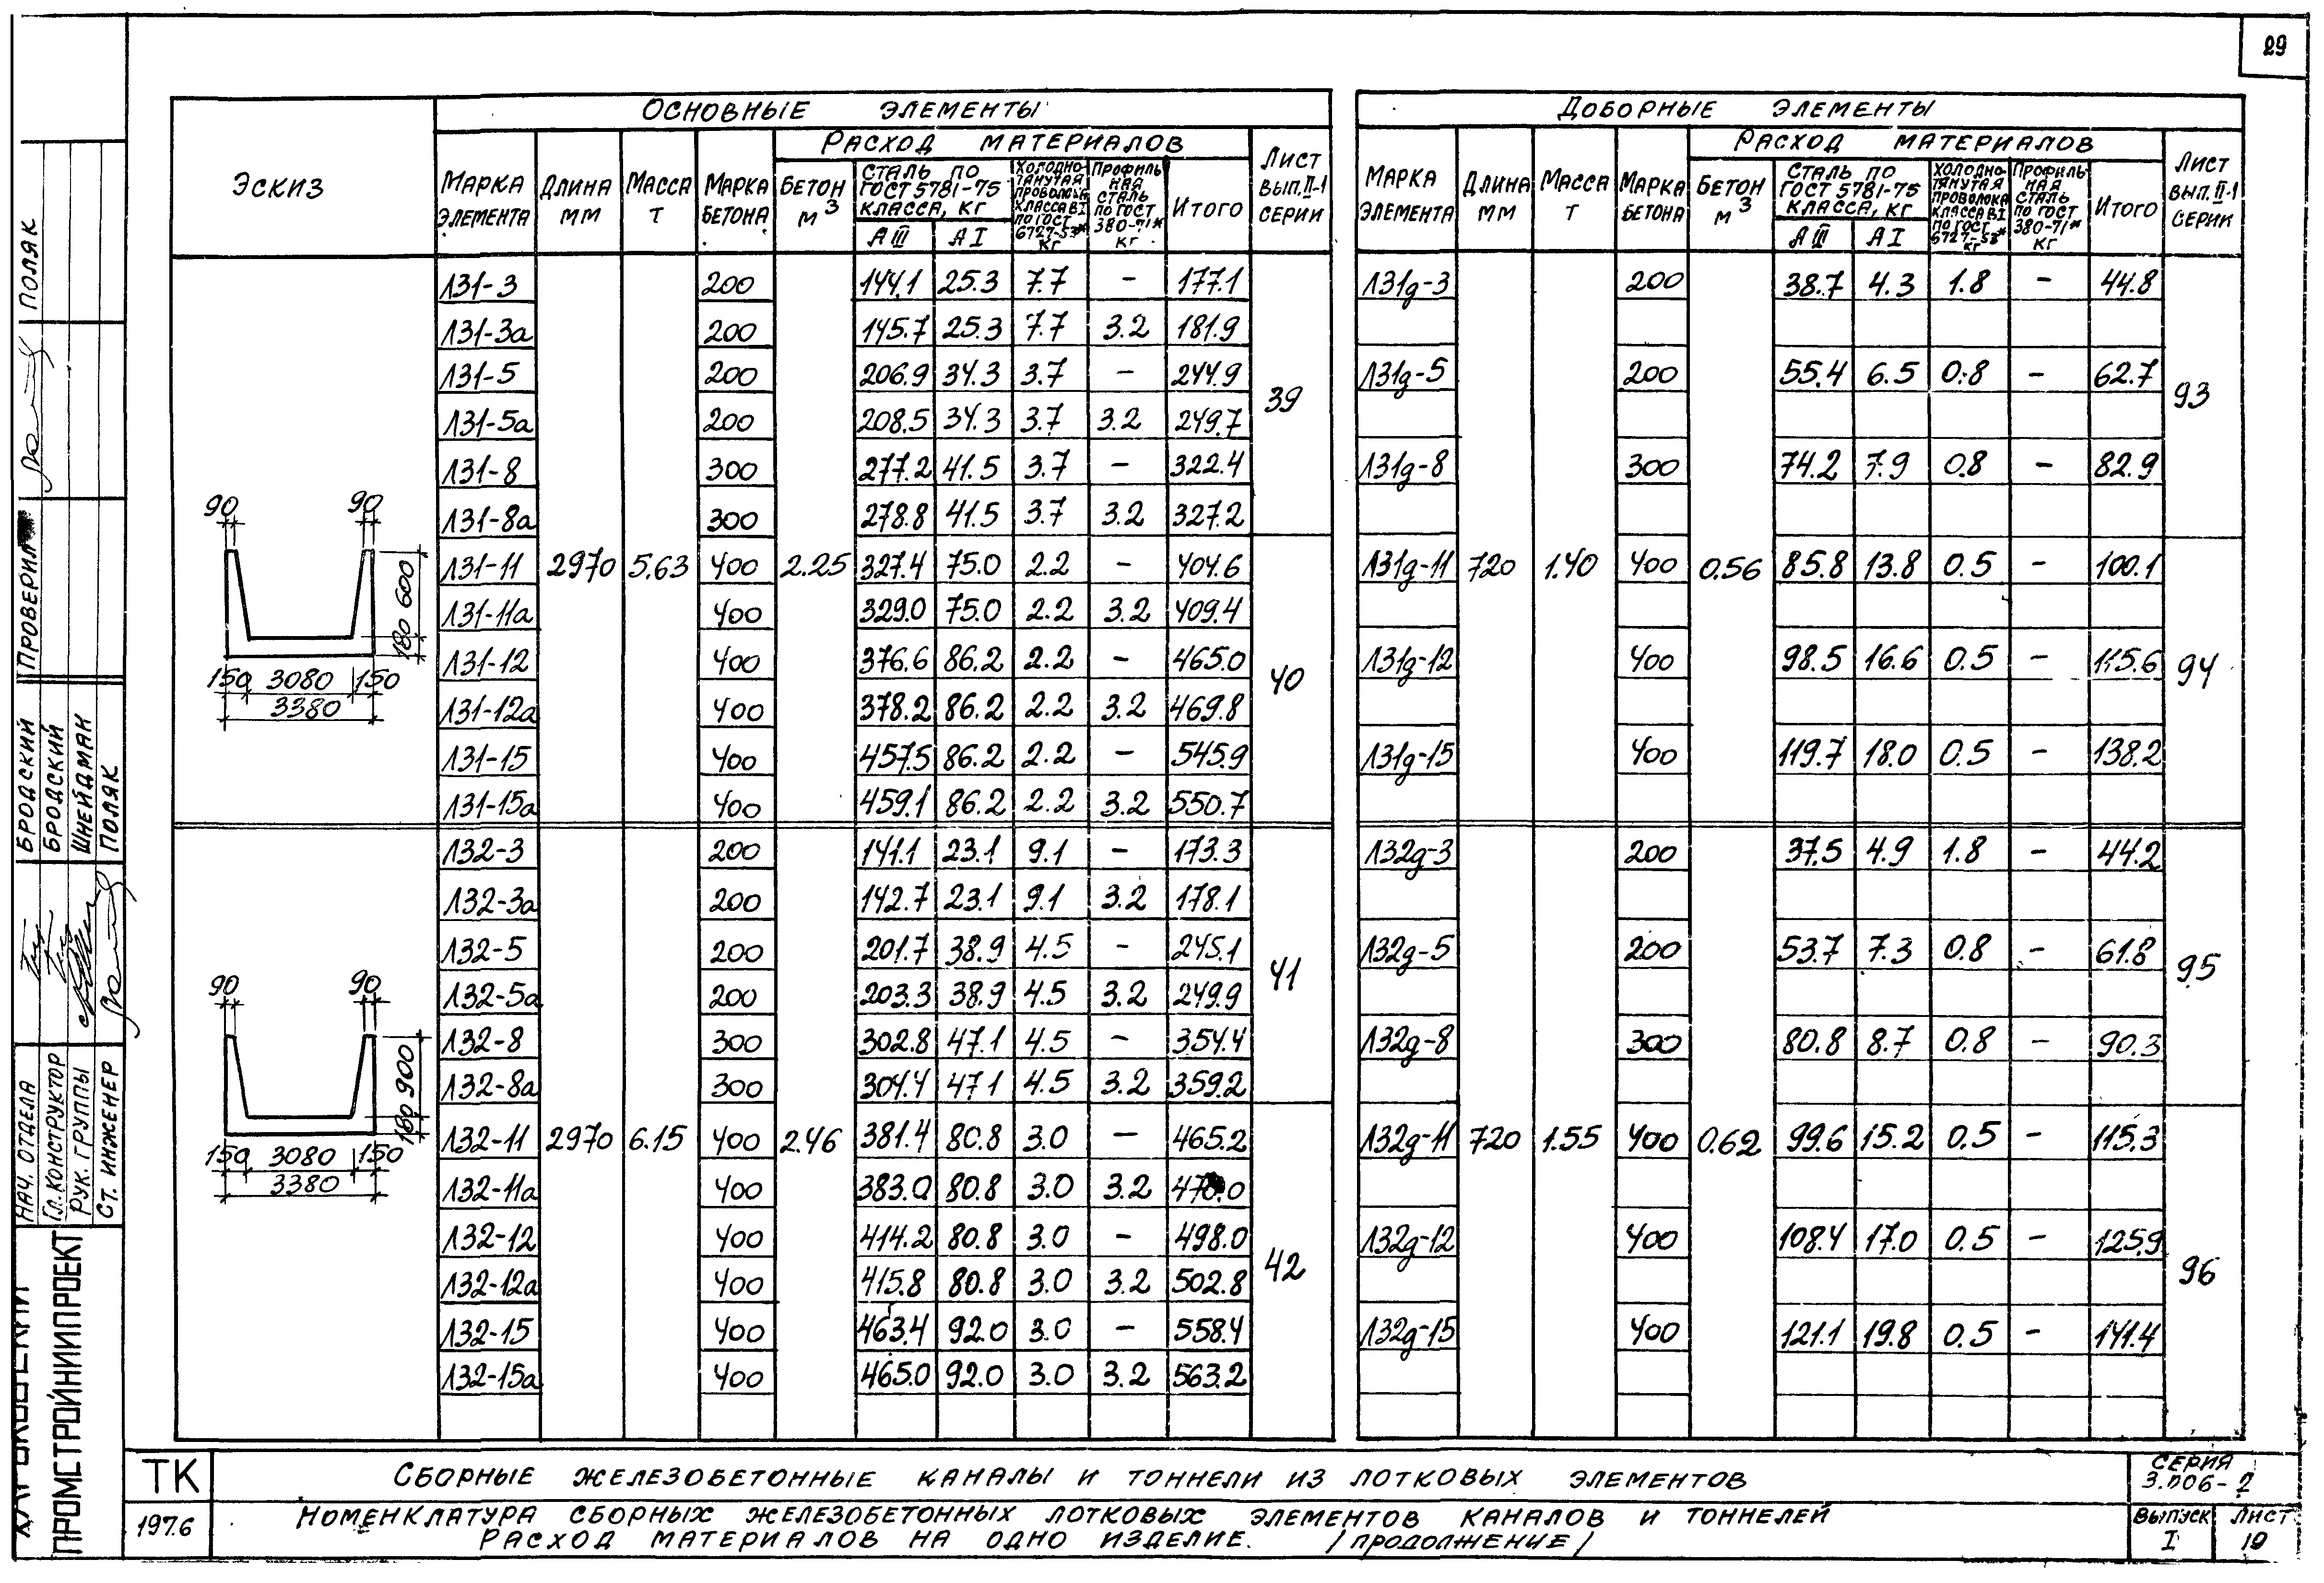 29
ЭСКИЗ
ОСНОВНЫЕ ЭЛЕМЕНТЫ
МАРКА ЭЛЕМЕНТА
ДЛИНА ММ
МАССА Т
МАРКА БЕТОНА
РАСХОД МАТЕРИАЛОВ
БЕТОН М3
СТАЛЬ ПО ГОСТ 5781-75 КЛАССА, КГ
А III А I
ХОЛОДНОТЯНУТАЯ ПРОВОЛОКА КЛАССА ВI ПО ГОСТ 6727-53* КГ
ПРОФИЛЬНАЯ СТАЛЬ ПО ГОСТ 380-71* КГ
ИТОГО
ЛИСТ ВЫП. II-1 СЕРИИ
Л31-3 200 144.1 25.3 7.7 – 177.1
Л31-3а 200 145.7 25.3 7.7 3.2 181.9
Л31-5 200 206.9 34.3 3.7 – 244.9
39
Л31-5а 200 208.5 34.3 3.7 3.2 249.7
Л31-8 300 277.2 41.5 3.7 – 322.4
Л31-8а 300 278.8 41.5 3.7 3.2 327.2
Л31-11 2970 5.63 400 2.25 327.4 75.0 2.2 – 404.6
Л31-11а 400 329.0 75.0 2.2 3.2 409.4
Л31-12 400 376.6 86.2 2.2 – 465.0
40
Л31-12а 400 378.2 86.2 2.2 3.2 469.8
Л31-15 400 457.5 86.2 2.2 – 545.9
Л31-15а 400 459.1 86.2 2.2 3.2 550.7
90 90
600
180
150 3080 150
3380
Л32-3 200 141.1 23.1 9.1 – 173.3
Л32-3а 200 142.7 23.1 9.1 3.2 178.1
Л32-5 200 201.7 38.9 4.5 – 245.1
41
Л32-5а 200 203.3 38.9 4.5 3.2 249.9
Л32-8 300 302.8 47.1 4.5 – 354.4
Л32-8а 300 304.4 47.1 4.5 3.2 359.2
Л32-11 2970 6.15 400 2.46 381.4 80.8 3.0 – 465.2
Л32-11а 400 383.0 80.8 3.0 3.2 470.0
Л32-12 400 414.2 80.8 3.0 – 498.0
42
Л32-12а 400 415.8 80.8 3.0 3.2 502.8
Л32-15 400 463.4 92.0 3.0 – 558.4
Л32-15а 400 465.0 92.0 3.0 3.2 563.2
90 90
900
180
150 3080 150
3380
ДОБОРНЫЕ ЭЛЕМЕНТЫ
МАРКА ЭЛЕМЕНТА
ДЛИНА ММ
МАССА Т
МАРКА БЕТОНА
РАСХОД МАТЕРИАЛОВ
БЕТОН М3
СТАЛЬ ПО ГОСТ 5781-75 КЛАССА, КГ
А III А I
ХОЛОДНОТЯНУТАЯ ПРОВОЛОКА КЛАССА ВI ПО ГОСТ 6727-53* КГ
ПРОФИЛЬНАЯ СТАЛЬ ПО ГОСТ 380-71* КГ
ИТОГО
ЛИСТ ВЫП. II-1 СЕРИИ
Л31g-3 200 38.7 4.3 1.8 – 44.8
Л31g-5 200 55.4 6.5 0.8 – 62.7
93
Л31g-8 300 74.2 7.9 0.8 – 82.9
Л31g-11 720 1.40 400 0.56 85.8 13.8 0.5 – 100.1
Л31g-12 400 98.5 16.6 0.5 – 115.6
94
Л31g-15 400 119.7 18.0 0.5 – 138.2
Л32g-3 200 37.5 4.9 1.8 – 44.2
Л32g-5 200 53.7 7.3 0.8 – 61.8
95
Л32g-8 300 80.8 8.7 0.8 – 90.3
Л32g-11 720 1.55 400 0.62 99.6 15.2 0.5 – 115.3
Л32g-12 400 108.4 17.0 0.5 – 125.9
96
Л32g-15 400 121.1 19.8 0.5 – 141.4
ПРОВЕРИЛ ПОЛЯК
НАЧ. ОТДЕЛА БРОДСКИЙ
ГЛ. КОНСТРУКТОР БРОДСКИЙ
РУК. ГРУППЫ ШНЕЙДМАН
СТ. ИНЖЕНЕР ПОЛЯК
ПРОМСТРОЙНИИПРОЕКТ
ТК
1976
СБОРНЫЕ ЖЕЛЕЗОБЕТОННЫЕ КАНАЛЫ И ТОННЕЛИ ИЗ ЛОТКОВЫХ ЭЛЕМЕНТОВ
НОМЕНКЛАТУРА СБОРНЫХ ЖЕЛЕЗОБЕТОННЫХ ЛОТКОВЫХ ЭЛЕМЕНТОВ КАНАЛОВ И ТОННЕЛЕЙ
РАСХОД МАТЕРИАЛОВ НА ОДНО ИЗДЕЛИЕ. /ПРОДОЛЖЕНИЕ/
СЕРИЯ
3.006-2
ВЫПУСК I
ЛИСТ 19